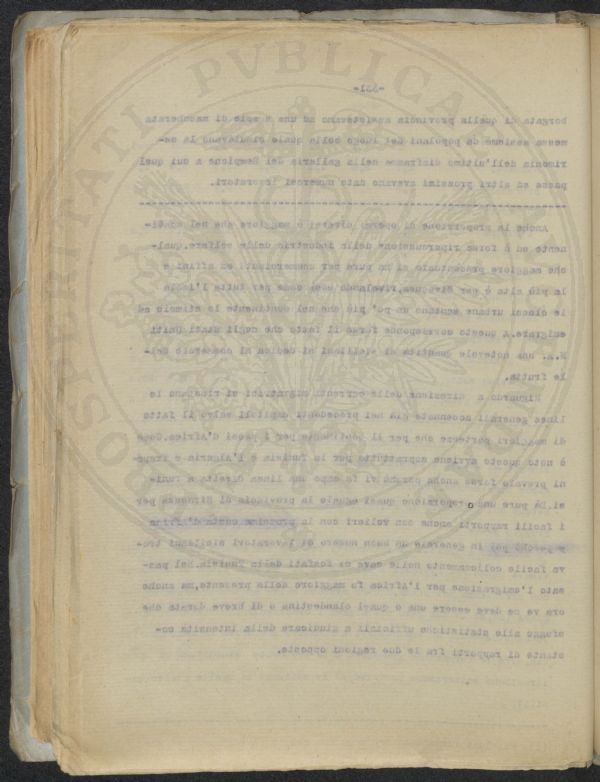 -331-
borgata di quella provincia assistevano ad una specie di mascherata
messa assieme da popolani del luogo colla quale simulavano la ce-
rimonia dell'ultimo diaframma della galleria del Sempione a cui quel
paese ed altri prossimi avevano dato numerosi lavoratori.
Anche la proporzione di operai diversi è maggiore che nel conti-
nente ed è forse ripercussione delle industrie delle zolfare, qual-
che maggiore procentuale si ha pure per commercianti ed affini e
la più alta è per Siracusa, rivelando essa come per tutta l'isola
le classi urbane sentano un po' più che nel continente lo stimolo ad
emigrare. A questo corrisponde forse il fatto che negli Stati Uniti
N.A. una notevole quantità di siciliani si dedica al commercio del-
le frutta.
Riguardo a direzione delle correnti emigratrici si ripetono le
linee generali accennate già nei precedenti capitoli salvo il fatto
di maggiori partenze che per il continente per i paesi d'Africa. Come
è noto questo avviene soprattutto per la Tunisia e l'Algeria e Trapa-
ni prevale forse anche perchè vi fa capo una linea diretta a Tuni-
si. Dà pure una proporzione quasi eguale la provincia di Siracusa per
i facili rapporti anche con velieri con la prossima costa d'Africa
e perchè poi in generale un buon numero di lavoratori siciliani tro-
va facile collocamento nelle cave di fosfati della Tunisia. Nel pas-
sato l'emigrazione per l'Africa fu maggiore della presente, ma anche
ora ve ne deve essere una o quasi clandestina o di breve durata che
sfugge alle statistiche ufficiali a giudicare della intensità co-
stante di rapporti fra le due regioni opposte.